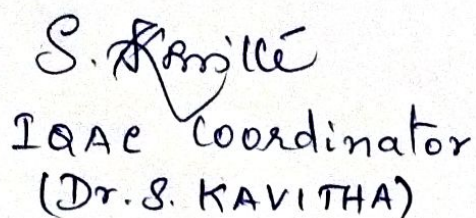 S. Kavitha
IQAC Coordinator
(Dr. S. KAVITHA)